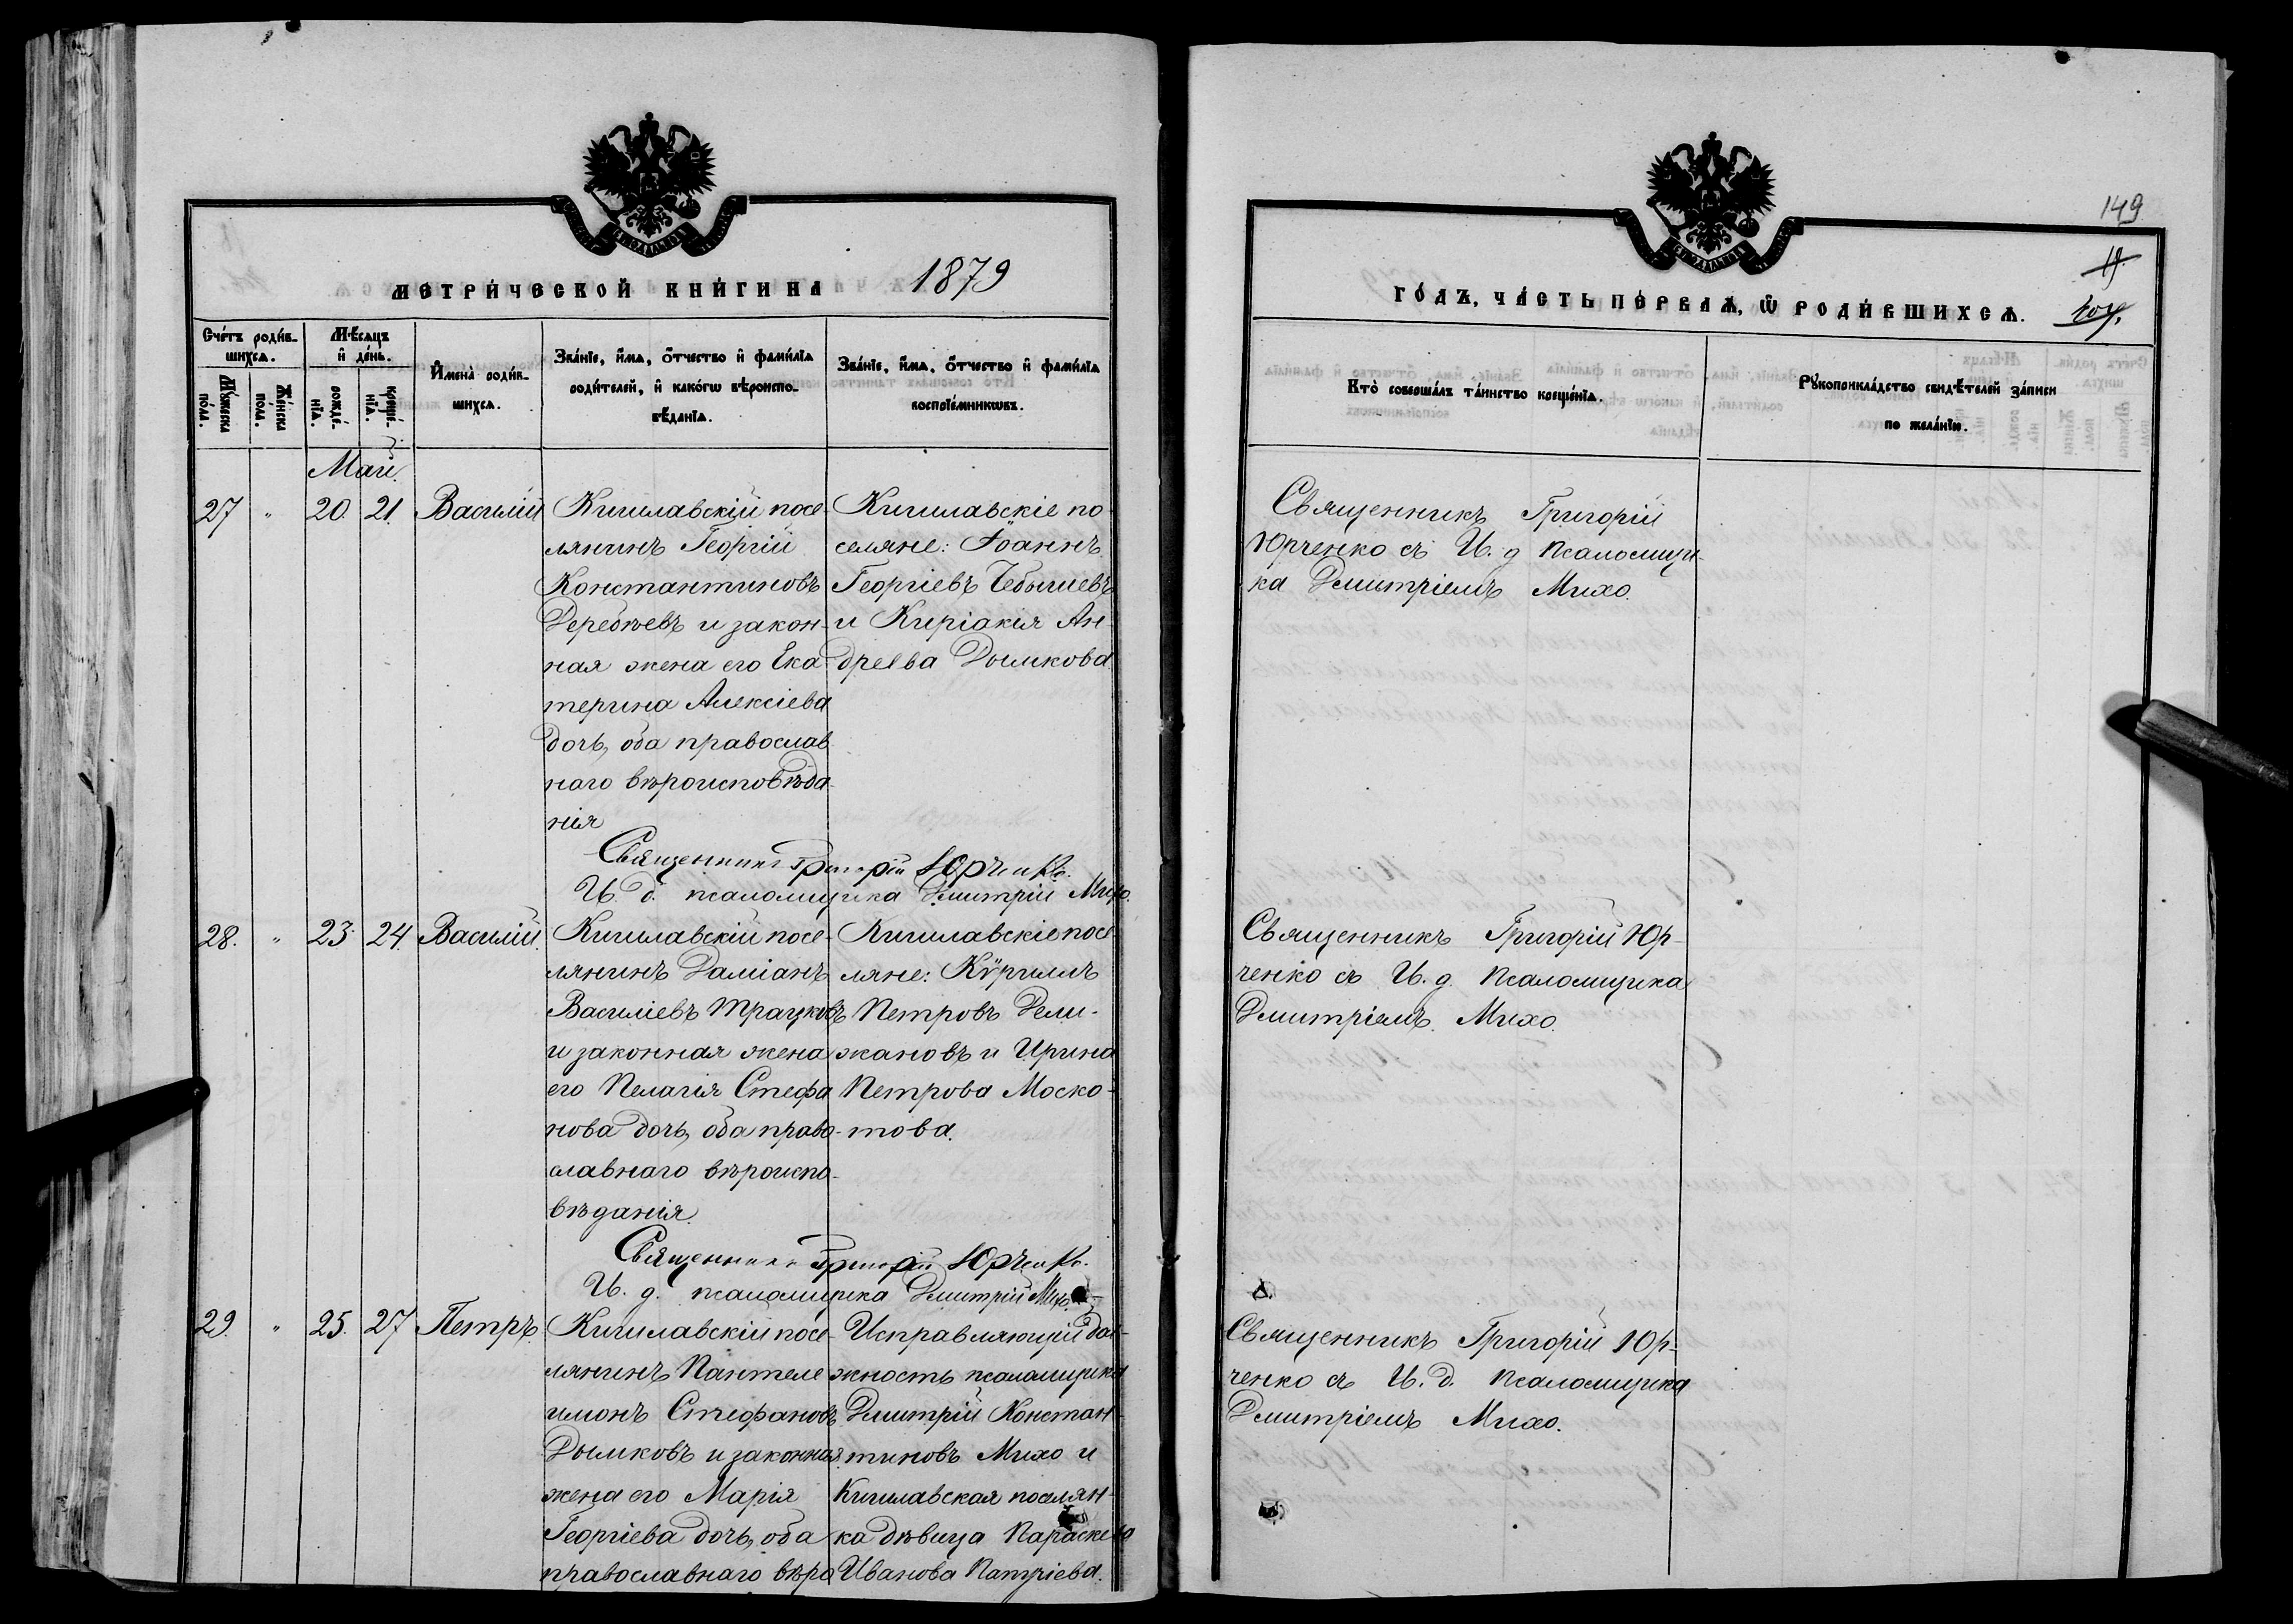 МЕТРИ́ЧЕСКОЙ КНИ́ГИ НА 1879
Сче́тъ роди́в-
шихся.
Му́жеска
по́ла.
Же́нска
по́ла.
Мѣ́сяцъ
и҆ де́нь.
рожде́-
нїѧ.
креще́-
нїѧ.
И҆мена̀ роди́в-
шихсѧ.
Зва́нїе, и҆́мѧ, ѻ҆́тчество и҆ фами́лїѧ
роди́телей, и҆ како́гѡ вѣроиспо-
вѣ́данїѧ.
Зва́нїе, и҆́мѧ, ѻ҆́тчество и҆ фами́лїѧ
воспрїе́мникѡвъ.
Май.
27 " 20. 21. Василій
Кишлавскій посе-
лянинъ Георгій
Константиновъ
Деребѣевъ и закон-
ная жена его Ека-
терина Алексіева
дочь, оба православ
наго вѣроисповѣда-
нія
Кишлавскіе по-
селяне: Іоаннъ
Георгіевъ Чебышевъ
и Киріакія Ан-
дреева Дымкова.
Священникъ Григорій Юрченко.
И. д. псаломщика Дмитрій Михо.
28. " 23. 24. Василій.
Кишлавскій посе-
лянинъ Даміанъ
Василіевъ Трацковъ
и законная жена
его Пелагія Стефа
нова дочь, оба право-
славнаго вѣроиспо-
вѣданія.
Кишлавскіе посе-
ляне: Кѵриллъ
Петровъ Дели-
жановъ и Ирина
Петрова Моско-
това.
Священникъ Григорій Юрченко.
И. д. псаломщика Дмитрій Михо.
29. " 25. 27 Петръ.
Кишлавскій посе-
лянинъ Пантеле
имонъ Стефановъ
Дымковъ и законная
жена его Марія
Георгіева дочь, оба
православнаго вѣро
Исправляющій дол-
жность псаломщика
Дмитрій Констан-
тиновъ Михо и
Кишлавская поселян-
ка дѣвица Параскева
Иванова Патріева.
149
19.
ГО́ДЪ, ЧА́СТЬ ПЕ́РВАѦ, Ѽ РОДИ́ВШИХСѦ.
Кто̀ соверша́лъ та́инство креще́нїѧ.
Рꙋкоприкла́дство свидѣ́телей за́писи
по жела́нїю.
Священникъ Григорій
Юрченко съ И. д псаломщи-
ка Дмитріемъ Михо.
Священникъ Григорій Юр-
ченко съ И. д. псаломщика
Дмитріемъ Михо.
Священникъ Григорій Юр-
ченко съ И. д. псаломщика
Дмитріемъ Михо.